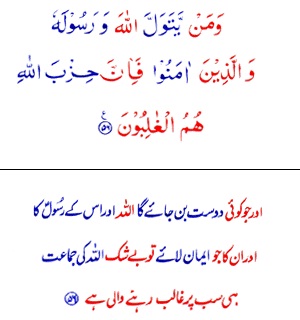 وَمَنْ يَّتَوَلَّ اللهَ وَ رَسُوْلَهٗ
وَ الَّذِيْنَ اٰمَنُوْا فَاِنَّ حِزْبَ اللهِ
هُمُ الْغٰلِبُوْنَ ﴿۵۶﴾ ع
اور جو کوئی دوست بن جائے گا اللہ اور اس کے رسُولؐ کا
اور ان کا جو ایمان لائے تو بے شک اللہ کی جماعت
ہی سب پر غالب رہنے والی ہے ﴿۵۶﴾